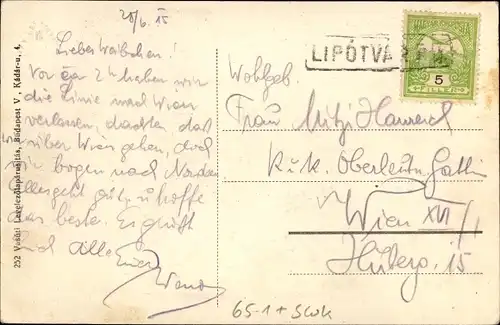 20/6. 15
Liebes Weibchen!
Vor ca 2h haben wir
die Linie nach Wien
verlassen, dachten das
wir über Wien gehen, doch
wir bogen nach Norden
Alles geht gut u hoffe
das beste. Es grüßt
und alle Euer
LIPÓTVÁR
5
FILLÉR
Wohlgeb.
Frau Mitzi
K.u.k. Oberleutn. Gattin
Wien XVI/1
15
252 Vasúti Levelezőlapárusítás, Budapest V., Kádár-u. 4.
65-1 + SWK